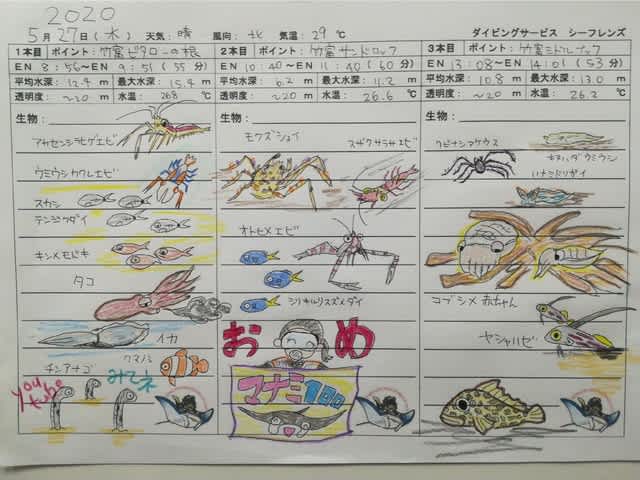 2020
5月27日(水) 天気: 晴 風向: 北 気温: 29℃ ダイビングサービス シーフレンズ
1本目 ポイント: 竹富ビタローの根
EN 8:56〜EN 9:51 (55分)
平均水深: 12.4 m 最大水深: 15.4 m
透明度: 〜20 m 水温: 26.8 ℃
生物:
アカセンシラヒゲエビ
ウミウシカクレエビ
スカシ
テンジクダイ
キンメモドキ
タコ
イカ
クマノミ
チンアナゴ
youtube
みてネ
2本目 ポイント: 竹富サンドロック
EN 10:40〜EN 11:40 (60分)
平均水深: 6.2 m 最大水深: 11.2 m
透明度: 〜20 m 水温: 26.6 ℃
生物:
モクズショイ
スザクサラサエビ
オトヒメエビ
シリキルリスズメダイ
おめ
マナミ100
3本目 ポイント:
EN 13:08〜EN 14:01 (53分)
平均水深: 10.8 m 最大水深: 13.0 m
透明度: 〜20 m 水温: 26.2 ℃
生物:
クビナシアケウス
キスハダウミウシ
ハナミドリガイ
コブシメ赤ちゃん
ヤシャハゼ